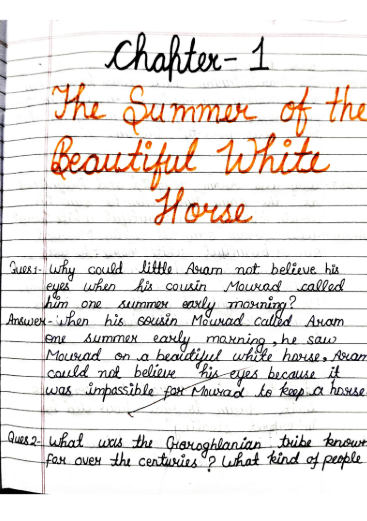 Chapter - 1
The Summer of the
Beautiful White
Horse
Ques1- Why could little Aram not believe his
eyes when his cousin Mourad called
him one summer early morning?
Answer - When his cousin Mourad called Aram
one summer early morning, he saw
Mourad on a beautiful white horse, Aram
could not believe his eyes because it
was impossible for Mourad to keep a horse
Ques2- What was the Garoghlanian tribe known
for over the centuries? What kind of people